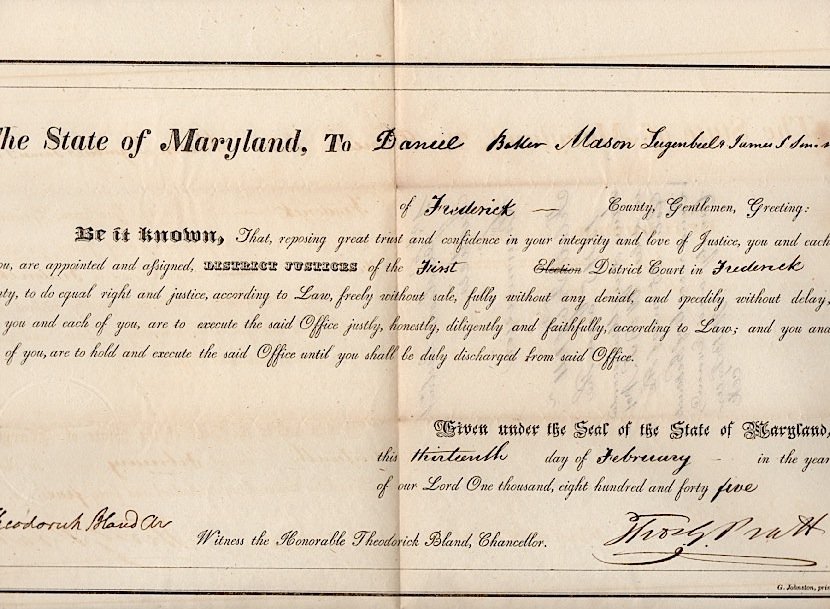 The State of Maryland, To Daniel Baker Mason Lugenbeel & James S Smi
of Frederick — County, Gentlemen, Greeting:
Be it known, That, reposing great trust and confidence in your integrity and love of Justice, you and each
ou, are appointed and assigned, DISTRICT JUSTICES of the First Election District Court in Frederick
nty, to do equal right and justice, according to Law, freely without sale, fully without any denial, and speedily without delay,
you and each of you, are to execute the said Office justly, honestly, diligently and faithfully, according to Law; and you and
of you, are to hold and execute the said Office until you shall be duly discharged from said Office.
Given under the Seal of the State of Maryland,
this thirteenth day of February – in the year
of our Lord One thousand, eight hundred and forty five
heodorick Bland
Witness the Honorable Theodorick Bland, Chancellor.
Thos G. Pratt
G. Johnston, prin